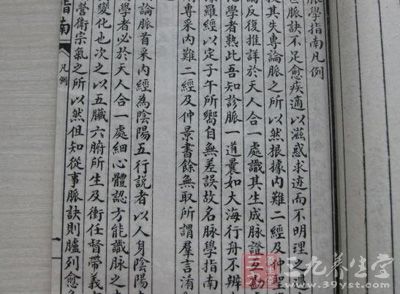 脈學指南凡例
脈訣不足愈疾適以滋惑求迹而不明理之過
其失專論脈之所以然根據內難二經及
反復推詳於天人合一處識其生成脈證互勘
化學者熟此吾知診脈一道曩如大海行舟不辨
羅經以定子午所嚮自無差誤故名脈學指南
專采內難二經及仲景書餘無取所謂羣言淆
論脈首采內經為陰陽五行說者以人身陰陽
學者必於天人合一處細心體認方能識脈之
變化也次之以五臟六腑所生及衝任督帶義
營衛宗氣之所以然但知從事脈訣則臚列愈
指南
凡例
一
三九养生堂
www.39yst.com